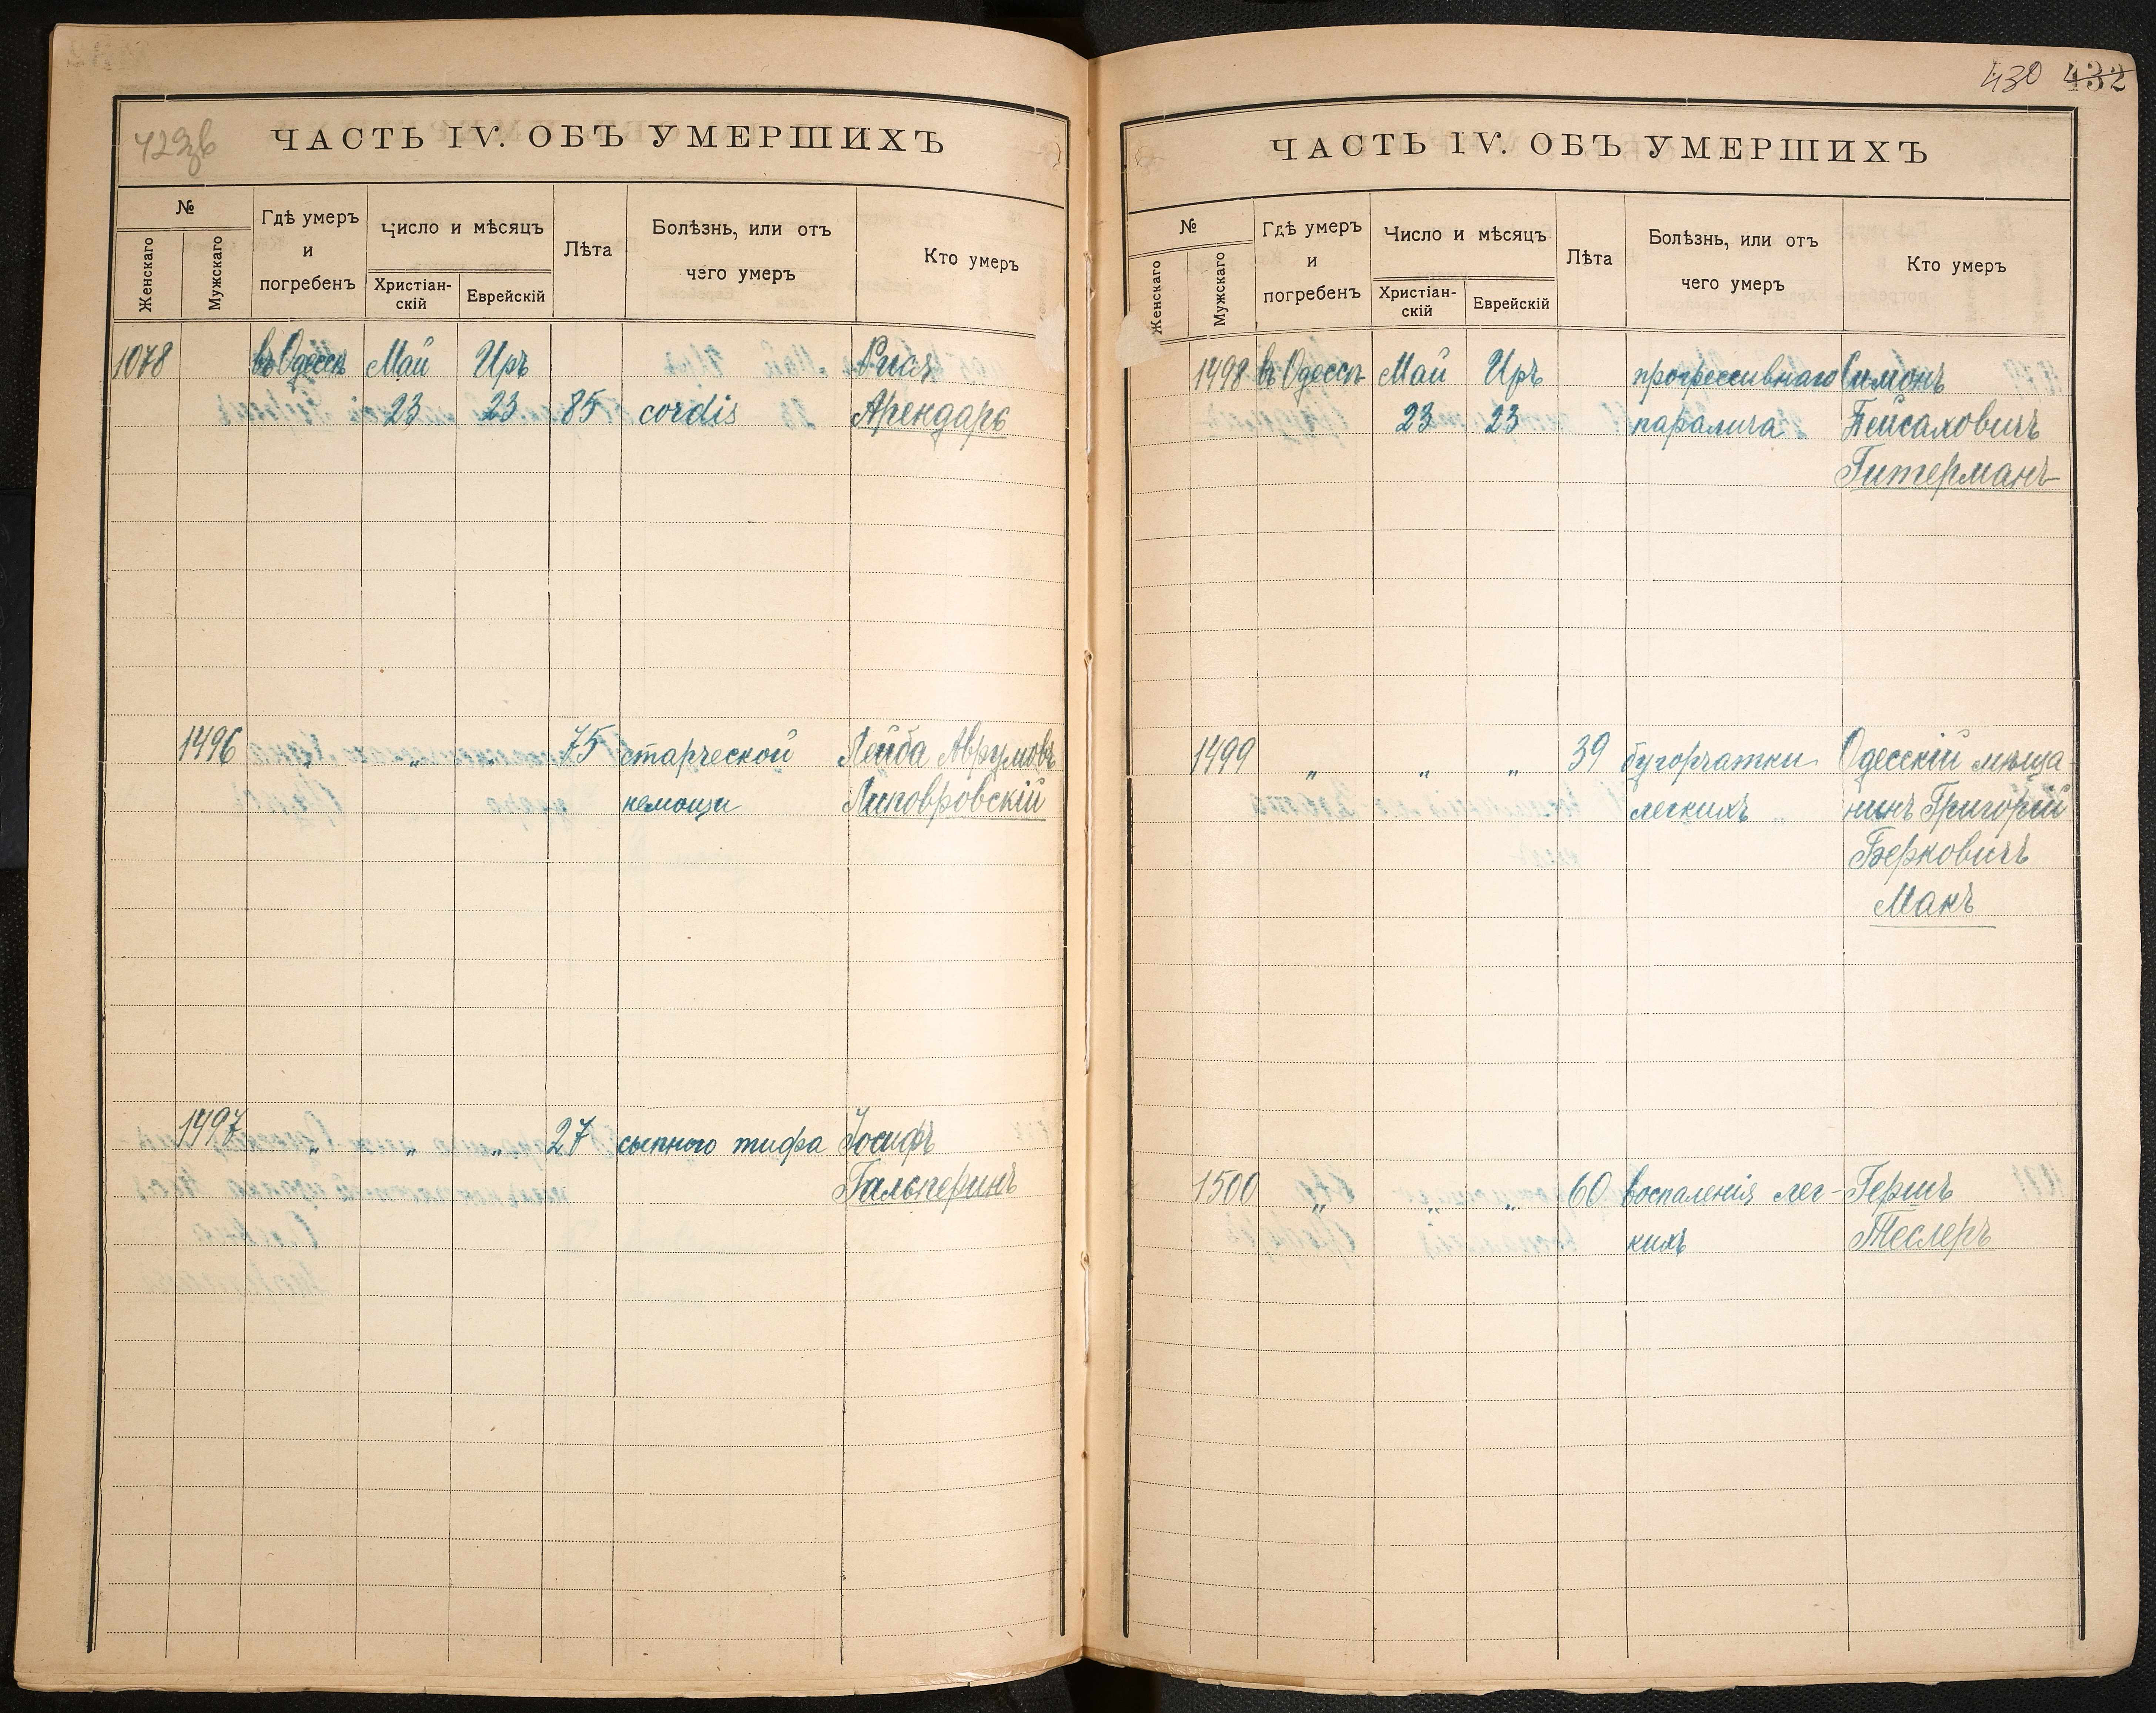 429зв
ЧАСТЬ IV. ОБЪ УМЕРШИХЪ
№
Женскаго
Мужскаго
Гдѣ умеръ
и
погребенъ
Число и мѣсяцъ
Христіан-
скій
Еврейскій
Лѣта
Болѣзнь, или отъ
чего умеръ
Кто умеръ
1078 въ Одессѣ Май Иръ Рися
23 23 85 cordis Арендарь
1496 „ „ „ 75 старческой Лейба Аврумовъ
немощи Липовровскій
1497 „ „ „ 27 сыпного тифа Іосифъ
Гальперинъ
430 432
ЧАСТЬ IV. ОБЪ УМЕРШИХЪ
№
Женскаго
Мужскаго
Гдѣ умеръ
и
погребенъ
Число и мѣсяцъ
Христіан-
скій
Еврейскій
Лѣта
Болѣзнь, или отъ
чего умеръ
Кто умеръ
1498 въ Одессѣ Май Иръ прогрессивнаго Симонъ
23 23 паралича Пейсаховичъ
Гитерманъ
1499 „ „ „ 39 бугорчатки Одесскій мѣща-
легкихъ нинъ Григорій
Берковичъ
Макъ
1500 „ „ „ 60 воспаленія лег- Гершъ
кихъ Теслеръ